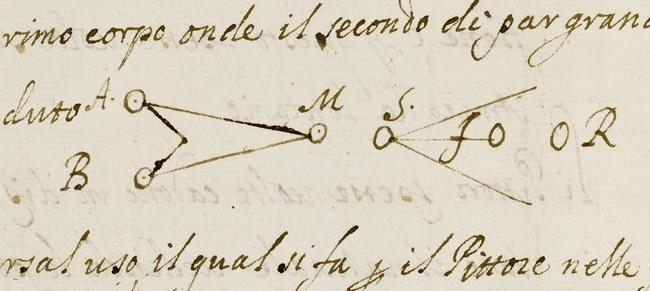 rimo corpo onde il secondo di par grand
duto A. M S. f R
B
rsal uso, il qual si fa p il Pittore nelle